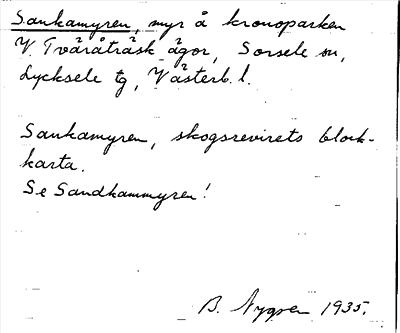 Sankamyren, myr å kronoparken
V. Tvåråträsk ägor, Sorsele sn,
Lycksele tg, Västerb. l.
Sankamyren, skogsrevirets block-
karta.
Se Sandkammyren!
B. Nygren 1935.